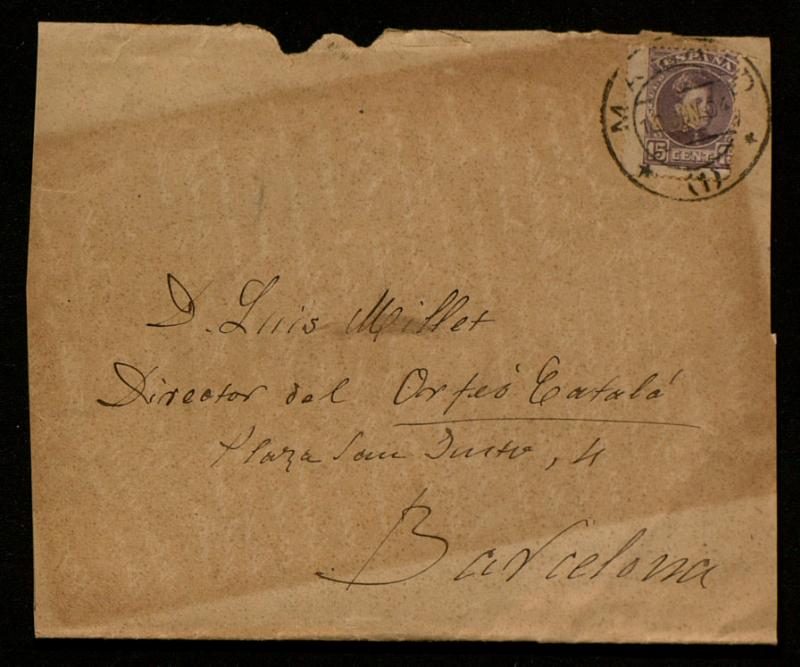 ESPAÑA
MADRID
15 CENTS
(1)
D. Luis Millet
Director del Orfeó Catalá
Plaza San Justo, 4
Barcelona